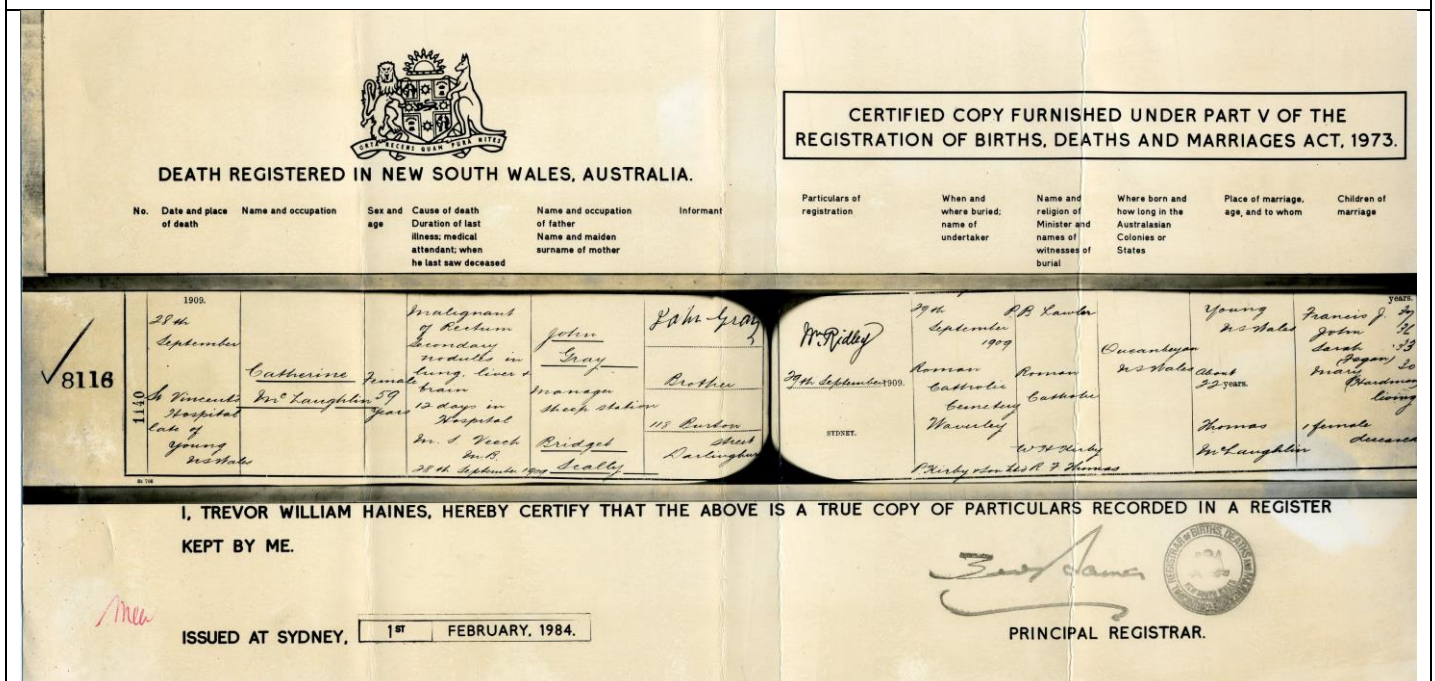 ORTA RECENS QUAM PURA NITES
DEATH REGISTERED IN NEW SOUTH WALES, AUSTRALIA.
CERTIFIED COPY FURNISHED UNDER PART V OF THE
REGISTRATION OF BIRTHS, DEATHS AND MARRIAGES ACT, 1973.
No.
Date and place
of death
Name and occupation
Sex and
age
Cause of death
Duration of last
illness; medical
attendant; when
he last saw deceased
Name and occupation
of father
Name and maiden
surname of mother
Informant
Particulars of
registration
When and
where buried;
name of
undertaker
Name and
religion of
Minister and
names of
witnesses of
burial
Where born and
how long in the
Australasian
Colonies or
States
Place of marriage,
age, and to whom
Children of
marriage
8116
1140
1909.
28th
September
St Vincents
Hospital
late of
Young
NSWales
Catherine
McLaughlin
Female
59
years
Malignant
of Rectum
Secondary
nodules in
lung, liver &
brain
12 days in
Hospital
M. S. Veech
M.B.
28th September 1909
John
Gray
Manager
sheep station
Bridget
Scally
John Gray
Brother
118 Burton
street
Wm Ridley
29th September 1909.
SYDNEY.
29th
September
1909
Roman
Catholic
Cemetery
Waverley
P. Kirby & Son Ltd
P.B. Lawler
Roman
Catholic
W H Kirby
R. F Thomas
NSWales
Young
NSWales
About
22 years.
Thomas
McLaughlin
years.
Francis J.
John
Sarah 33
(Fagan)
Mary 30
Hardman
living
1 female
deceased
I, TREVOR WILLIAM HAINES, HEREBY CERTIFY THAT THE ABOVE IS A TRUE COPY OF PARTICULARS RECORDED IN A REGISTER
KEPT BY ME.
ISSUED AT SYDNEY, 1ST FEBRUARY, 1984.
PRINCIPAL REGISTRAR.